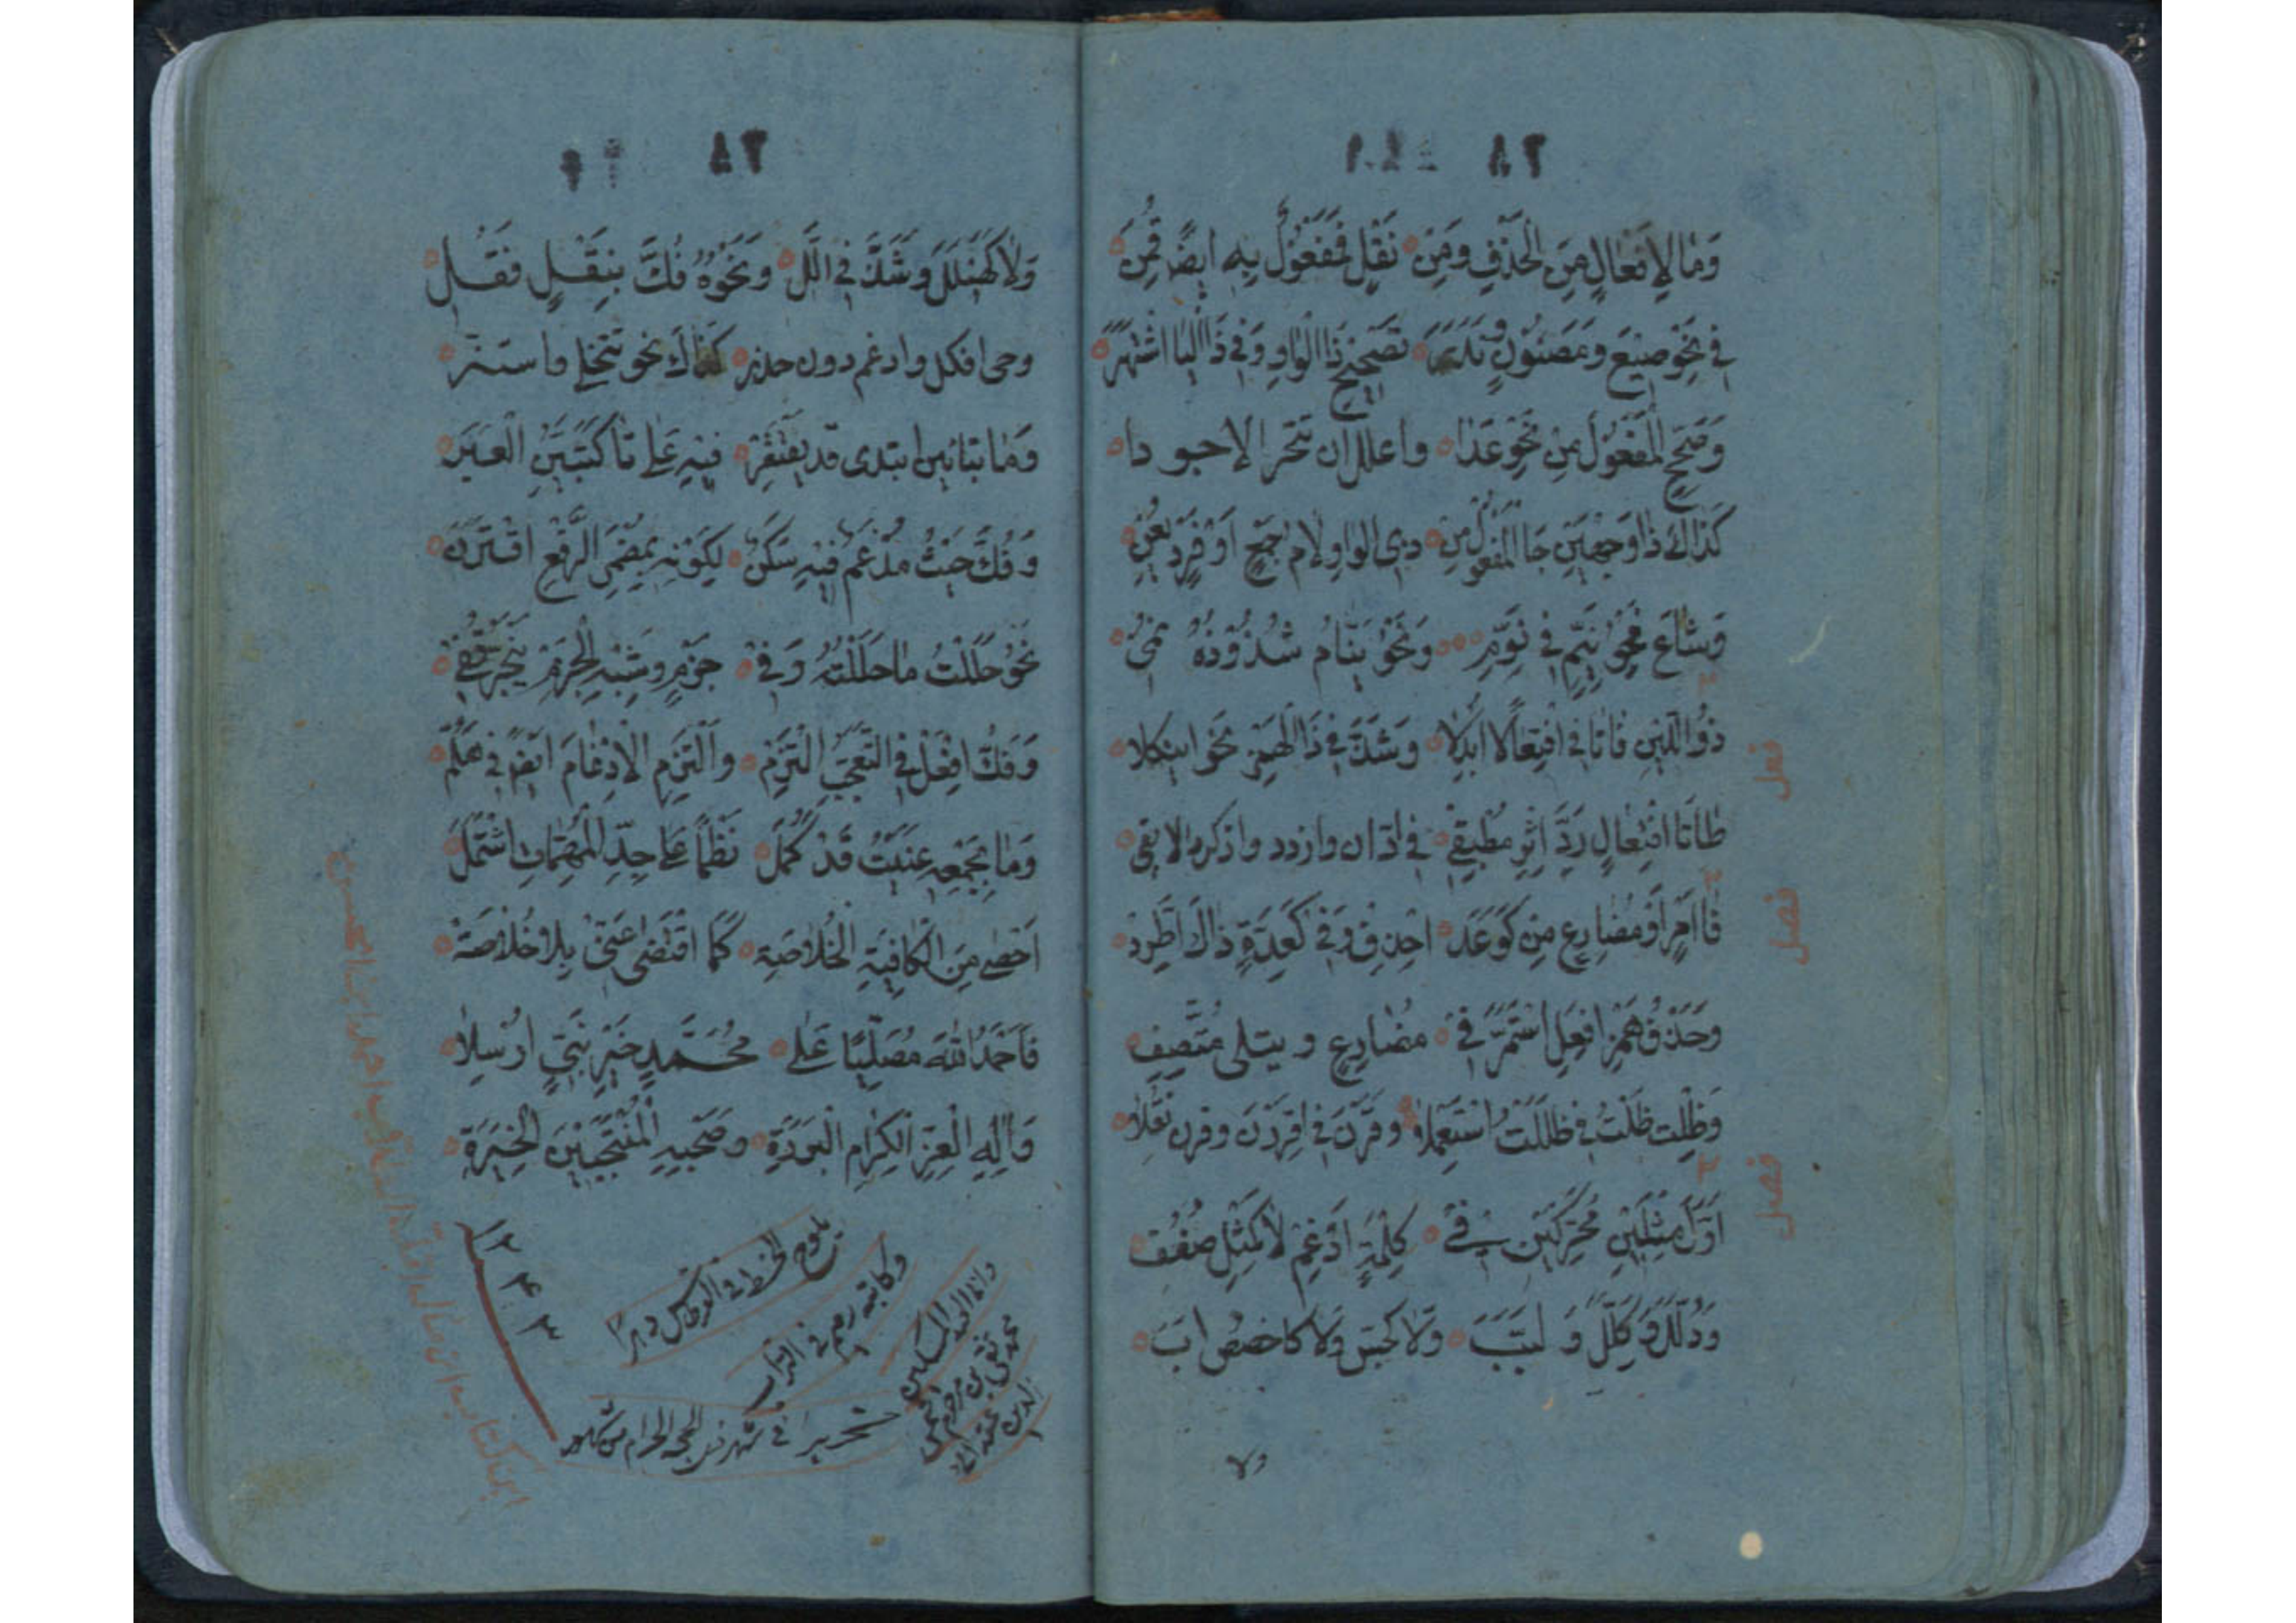 وَمَا لِإِفْعَالٍ مِنَ الْحَذْفِ وَمِنْ نَقْلٍ فَمَفْعُولٌ بِهِ ايضًا قَمِنْ
فِي نَحْوِ مَبِيعٍ وَمَصُونٍ وَنَدَرْ تَصْحِيحُ ذَا الْوَاوِ وَفِي ذَا الْيَا اشْتَهَرْ
وَصَحِّحِ الْمَفْعُولَ مِنْ نَحْوِ عَدَا واعلل ان تتحر الاجودا
كَذَاكَ ذَا وَجْهَيْنِ جَا الْمَفْعُولُ مِنْ ذي الواو لام جَمْعٍ أَوْ فَرْدٍ يَعِنُّ
وَشَاعَ نَحْوُ نُيَّمٍ فِي نُوَّمِ وَنَحْوُ نُيَّامٍ شُذُوذُهُ نُمِي
ذُو اللِّينِ فَاتَا فِي افْتِعَالٍ ابْدِلَا وَشَذَّ فِي ذَا الْهَمْزِ نَحْوُ ايتكلا
طَا تَا افْتِعَالٍ رُدَّ اثْرَ مُطْبَقِ في ادان وازدد وادكر دالا بقي
فَا امْرٍ اوْ مُضَارِعٍ مِنْ كَوَعَدْ احْذِفْ وَفِي كَعِدَةٍ ذَاكَ اطَّرَدْ
وحَذْفُ هَمْزِ افْعَلَ اسْتَمَرَّ فِي مُضَارِعٍ و بنيتي مُتَّصِفِ
وَظِلْتُ ظَلْتُ فِي ظَلِلْتُ اسْتُعْمِلَا وقِرْنَ فِي اقْرِرْنَ وقرن نُقِلَا
اوَّلَ مِثْلَيْنِ مُحَرَّكَيْنِ فِي كِلْمَةٍ ادْغِمْ لَا كَمِثْلِ صُفَفِ
وَذُلُلٍ وَكِلَلٍ وَ لَبَبِ وَلَا كَجُسَّسٍ وَلَا كَاخْصُصَ ابِي
ولا
وَلَا كَهَيْلَلٍ وَشَذَّ فِي الَلْ وَنَحْوِهِ فَكٌّ بِنَقْلٍ فَقُبِلْ
وحي افكك وادغم دون حذر كَذَاكَ نحو تتجلى واستتر
وَمَا بتائين ابتدى قد يقتصر فِيهِ عَلَى تَا كَتَبَيَّنُ الْعِبَرْ
وَفُكَّ حَيْثُ مُدْغَمٌ فِيهِ سَكَنْ لِكَوْنِهِ بِمُضْمَرِ الرَّفْعِ اقْتَرَنْ
نَحْوُ حَلَلْتُ مَا حَلَلْتَهُ وَفِي جَزْمٍ وَشِبْهِ الْجَزْمِ تَخْيِيرٌ قُفِي
وَفَكُّ افْعِلْ فِي التَّعَجُّبِ الْتُزِمْ وَالْتُزِمَ الْإِدْغَامُ ايْضًا فِي هَلُمْ
وَمَا بِجَمْعِهِ عُنِيتُ قَدْ كَمَلْ نَظْمًا عَلَى جُلِّ الْمُهِمَّاتِ اشْتَمَلْ
احْصَى مِنَ الْكَافِيَةِ الْخُلَاصَةْ كَمَا اقْتَضَى غِنًى بِلَا خَصَاصَةْ
فَاحْمَدُ اللهَ مُصَلِّيًا عَلَى مُحَمَّدٍ خَيْرِ نَبِيٍّ ارْسِلَا
وَآلِهِ الْغُرِّ الْكِرَامِ الْبَرَرَةْ وَصَحْبِهِ الْمُنْتَخَبِينَ الْخِيَرَةْ
يلوح الخط في القرطاس دهرا
وكاتبه رميم في التراب
تحريرا في شهر ذي الحجة الحرام
فصل
فصل